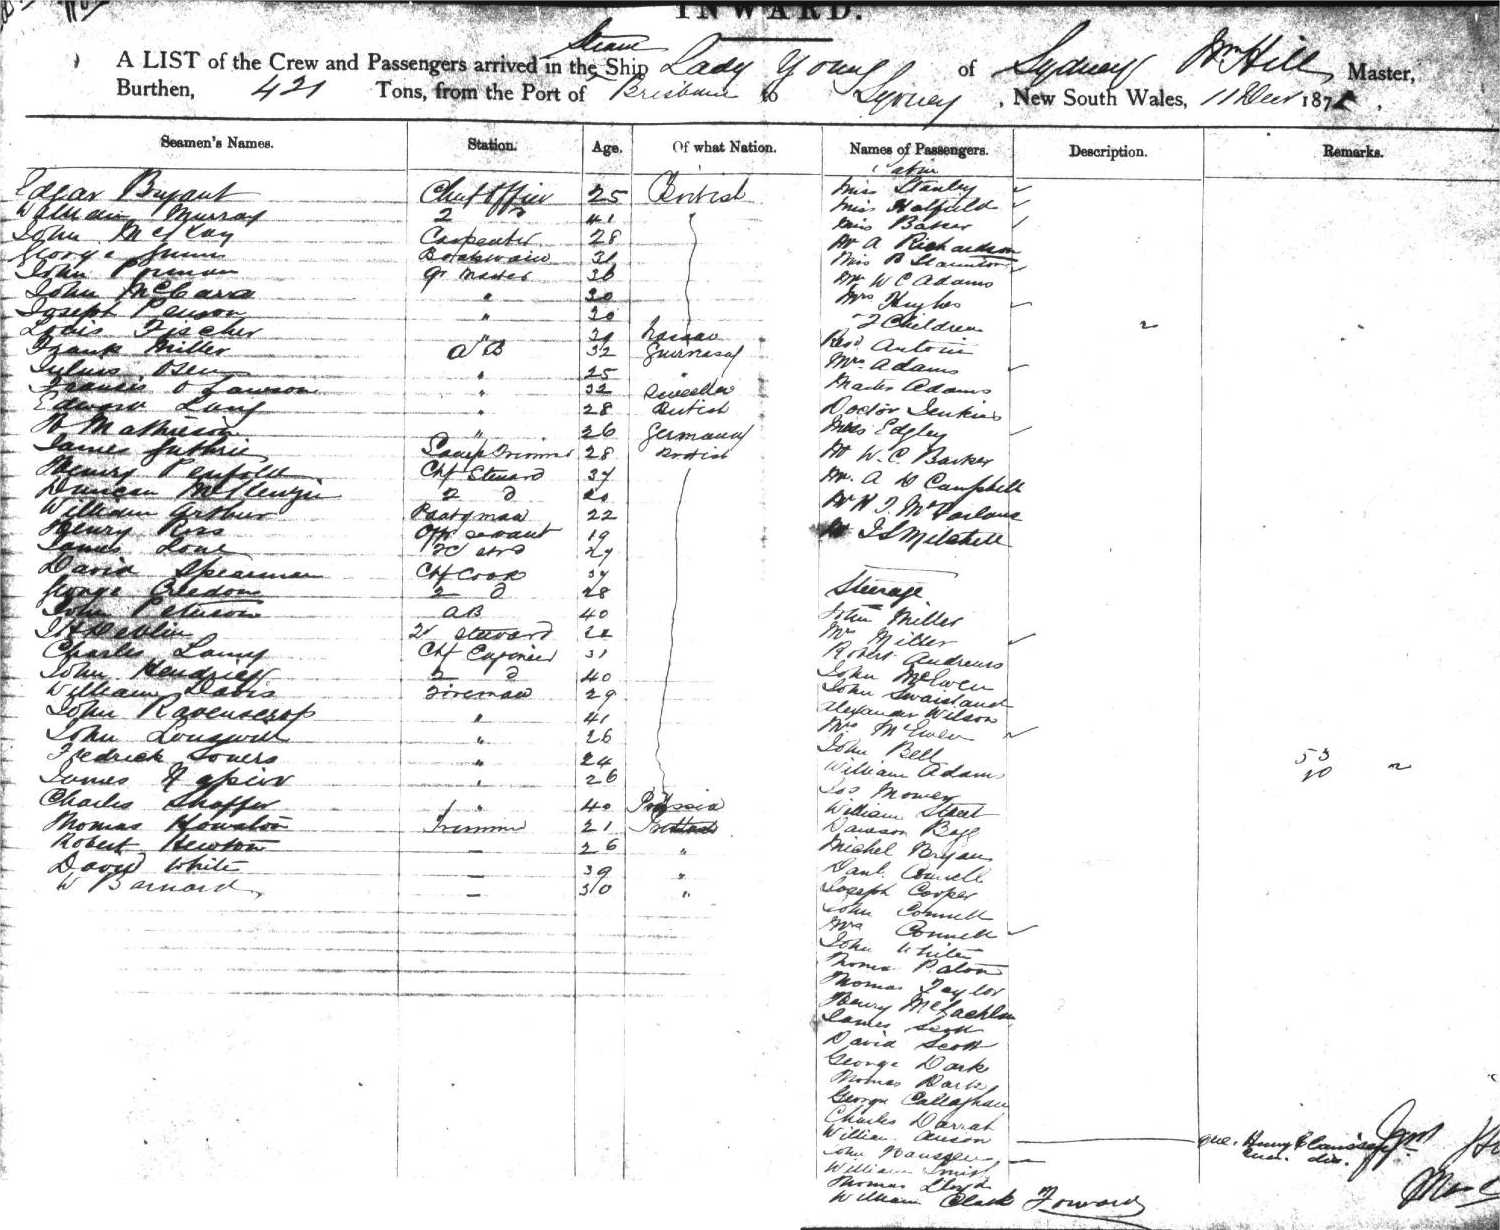 INWARD.
A LIST of the Crew and Passengers arrived in the Steam Ship Lady Young of Sydney Wm Hill Master,
Burthen, 421 Tons, from the Port of Brisbane to Sydney, New South Wales, 11 Decr 187
Seamen's Names. Station. Age. Of what Nation. Names of Passengers. Description. Remarks.
Cabin
Edgar Bryant Chief Officer 25 British
William Murray 2 D 41 "
John McKay Carpenter 28
George Boatswain 31
John Qr Master 36
John McCarra " 30
Joseph " 30
Louis Fischer "
Frank Miller AB 32 Guernsey
Julius Olsen " 25 "
Francis O Lawson " 32
Edward Lang " 28 British
W Mathieson " 26 Germany
James Guthrie Lamp Trimmer 28 British
Henry Penfold Chf Steward 37
Duncan McKenzie 2 D
William Arthur Pantryman 22
Henry Ross Offr servant 19
James Lowe 27
David Spearman Chf Cook 37
George Creedon 2 D 28
John Peterson AB 40
J H Devlin 2d Steward
Charles Lamy Chf Engineer 31
John Hendrick 2 D 40
William Davis Fireman 29
John Ravenscroft " 41
John Longwill " 26
Fredrick Sowers " 24
James Napier " 26
Charles Shaffer " 40 Prussia
Thomas Houston Trimmer 21
Robert Hewton – 26 "
David White – 39 "
W Barnard – 30 "
Miss Stanley
Miss Hatfield
Miss Baker
Mr A Richardson
Miss B Staunton
Mr W C Adams
Mrs Hughes
2 Children 2
Revd Antoine
Mrs Adams
Master Adams
Doctor Jenkins
Miss Edgley
Mr W. C. Barker
Mr. A D Campbell
Mr H J. McFarlane
Mr J S Mitchell
Steerage
John Miller
Mrs Miller
Robert Andrews
John McEwen
John Swaisland
Alexander Wilson
Mrs McEwen
John Bell 53
William Adams 10
Jos Mowey
William Street
Dawson Ball
Michel Bryan
Danl. Connell
Joseph Cooper
John Connell
Mrs Connell
John White
Thomas Paton
Thomas Taylor
Henry McLachlan
James Scott
David Scott
George Dark
Thomas Dark
George Callaghan
Charles Darrah
William Anson
John
William Smith
Thomas Lloyd
William Clark Forward